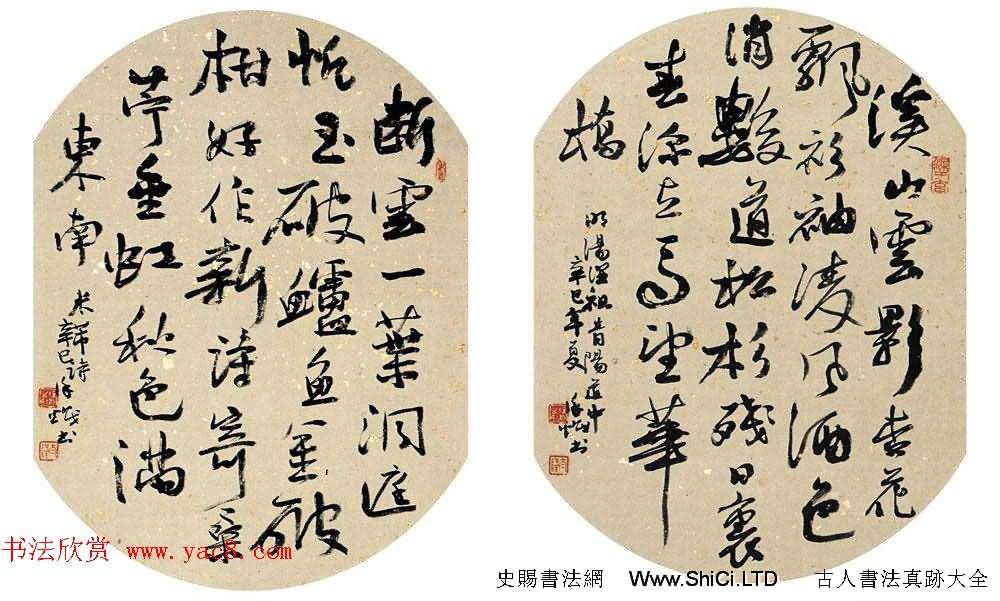 溪山雲影杏花
飄衫袖凌風酒色
消數道松杉殘日裏
春深立馬望華
橋
明湯顯祖青陽道中
辛巳年夏 書
斷雲一葉洞庭
帆玉破鱸魚金破
柑好作新詩寄桑
苧垂虹秋色滿
東南
米芾詩
辛巳年 書
书法欣赏 www.yac8.com
史賜書法網 Www.ShiCi.LTD 古人書法真跡大全